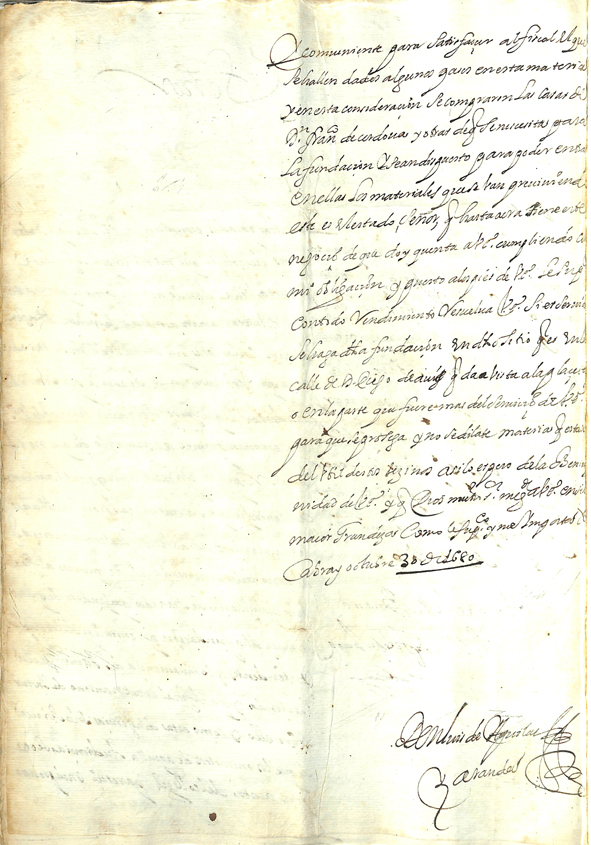 comuniente para satisfaçer al fiscal el que
se hallen dados algunos pasos en esta materia
y en esta consideraçion se compraron las casas de
Dn. Franco de cordova y otras de q se nececita para
la fundaçion y sean dispuesto para poder entrar
en ellas los materiales que se ban previniendo
este es el estado, señor, q hasta aora tiene este
negocio de que doy quenta a Vs. cumpliendo co
mi obligaçion y puesto a los pies de Vs. le supco
con todo rendimiento resuelva Vs. si es servido
se haga dha fundaçion en dho sitio q es en la
calle de D. Diego de q da vista a la plaçeta
o en la parte que fuere mas del serviçio de Vs.
para que se prosiga y no se dilate materia q es tan
del de sus vezinos asi lo espero de la Benig
nidad de Vs. y q Dios muchos. me gde a Vs. en su
maior Grandeza como le supco y me importa
Cabra y octubre 30 de 1680
Don Luis de
y aranda